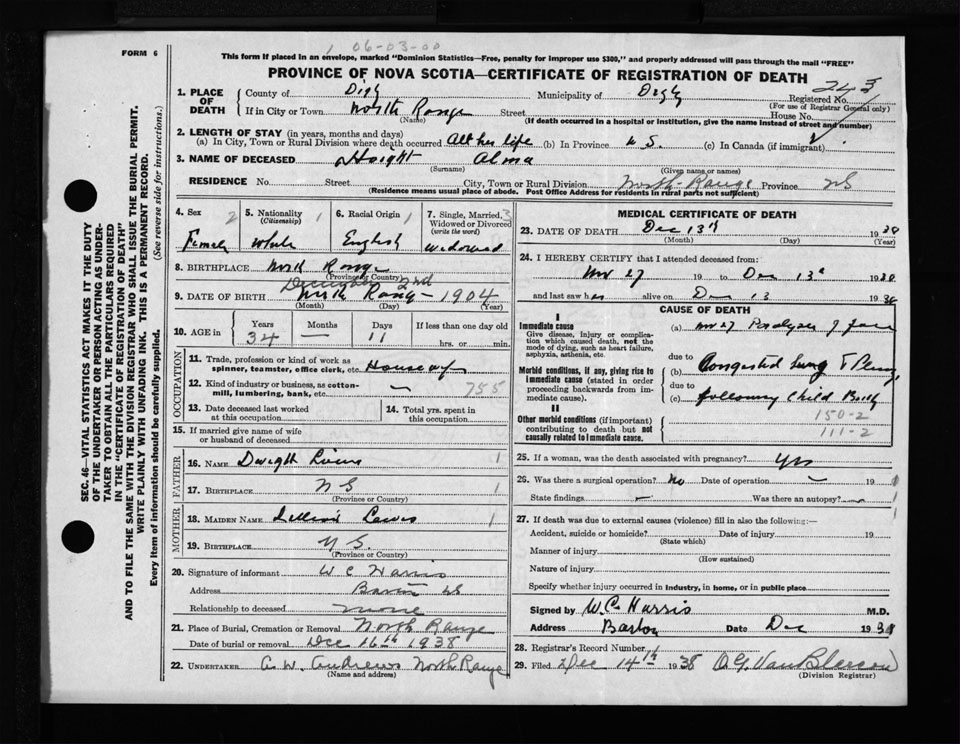 FORM 6
1 06-03-00
This form if placed in an envelope, marked "Dominion Statistics—Free, penalty for improper use $300," and properly addressed will pass through the mail "FREE"
PROVINCE OF NOVA SCOTIA—CERTIFICATE OF REGISTRATION OF DEATH
1. PLACE OF DEATH County of Digby Municipality of Digby Registered No. 243
(For use of Registrar General only)
If in City or Town North Range Street House No.
(Name) (If death occurred in a hospital or institution, give the name instead of street and number)
2. LENGTH OF STAY (in years, months and days)
(a) In City, Town or Rural Division where death occurred All her life (b) In Province N S. (c) In Canada (if immigrant)
3. NAME OF DECEASED Haight Alma
(Surname) (Given name or names)
RESIDENCE No. Street City, Town or Rural Division North Range Province NS
(Residence means usual place of abode. Post Office Address for residents in rural parts not sufficient)
4. Sex 2 Female
5. Nationality (Citizenship) 1 White
6. Racial Origin 1 English
7. Single, Married, Widowed or Divorced (write the word) 3 Widowed
8. BIRTHPLACE North Range
(Province or Country)
December 2nd
9. DATE OF BIRTH North Range - 1904
(Month) (Day) (Year)
10. AGE in Years 34 Months — Days 11 If less than one day old hrs. or min.
OCCUPATION
11. Trade, profession or kind of work as spinner, teamster, office clerk, etc.
12. Kind of industry or business, as cotton-mill, lumbering, bank, etc. — 755
13. Date deceased last worked at this occupation
14. Total yrs. spent in this occupation
15. If married give name of wife or husband of deceased
FATHER
16. NAME Dwight 1
17. BIRTHPLACE N S
(Province or Country)
MOTHER
18. MAIDEN NAME Lewis 1
19. BIRTHPLACE N S.
(Province or Country)
20. Signature of informant W C Harris
Address Barton NS
Relationship to deceased none
21. Place of Burial, Cremation or Removal North Range
Date of burial or removal Dec 16th 1938
22. UNDERTAKER A. W. Andrews North Range
(Name and address)
MEDICAL CERTIFICATE OF DEATH
23. DATE OF DEATH Dec 13th 1938
(Month) (Day) (Year)
24. I HEREBY CERTIFY that I attended deceased from:
Nov 27 19 to Dec 13th 1938
and last saw her alive on Dec 13 1938
CAUSE OF DEATH
I
Immediate cause
Give disease, injury or complication which caused death, not the mode of dying, such as heart failure, asphyxia, asthenia, etc.
(a) Nov 27 Paralysis of face
due to
Morbid conditions, if any, giving rise to immediate cause (stated in order proceeding backwards from immediate cause).
(b) Congested lung
due to
(c) following Child Birth
150-2
111-2
II
Other morbid conditions (if important) contributing to death but not causally related to immediate cause.
25. If a woman, was the death associated with pregnancy? Yes
26. Was there a surgical operation? No Date of operation — 19
State findings — Was there an autopsy? —
27. If death was due to external causes (violence) fill in also the following:—
Accident, suicide or homicide? Date of injury 19
(State which)
Manner of injury
(How sustained)
Nature of injury
Specify whether injury occurred in industry, in home, or in public place
Signed by W.C. Harris M.D.
Address Barton Date Dec 1938
28. Registrar's Record Number
29. Filed Dec 14th 1938 O G. VanBlarcom
(Division Registrar)
SEC. 46—VITAL STATISTICS ACT MAKES IT THE DUTY OF THE UNDERTAKER OR PERSON ACTING AS UNDERTAKER TO OBTAIN ALL THE PARTICULARS REQUIRED IN THE "CERTIFICATE OF REGISTRATION OF DEATH" AND TO FILE THE SAME WITH THE DIVISION REGISTRAR WHO SHALL ISSUE THE BURIAL PERMIT.
WRITE PLAINLY WITH UNFADING INK. THIS IS A PERMANENT RECORD.
Every item of information should be carefully supplied. (See reverse side for instructions.)